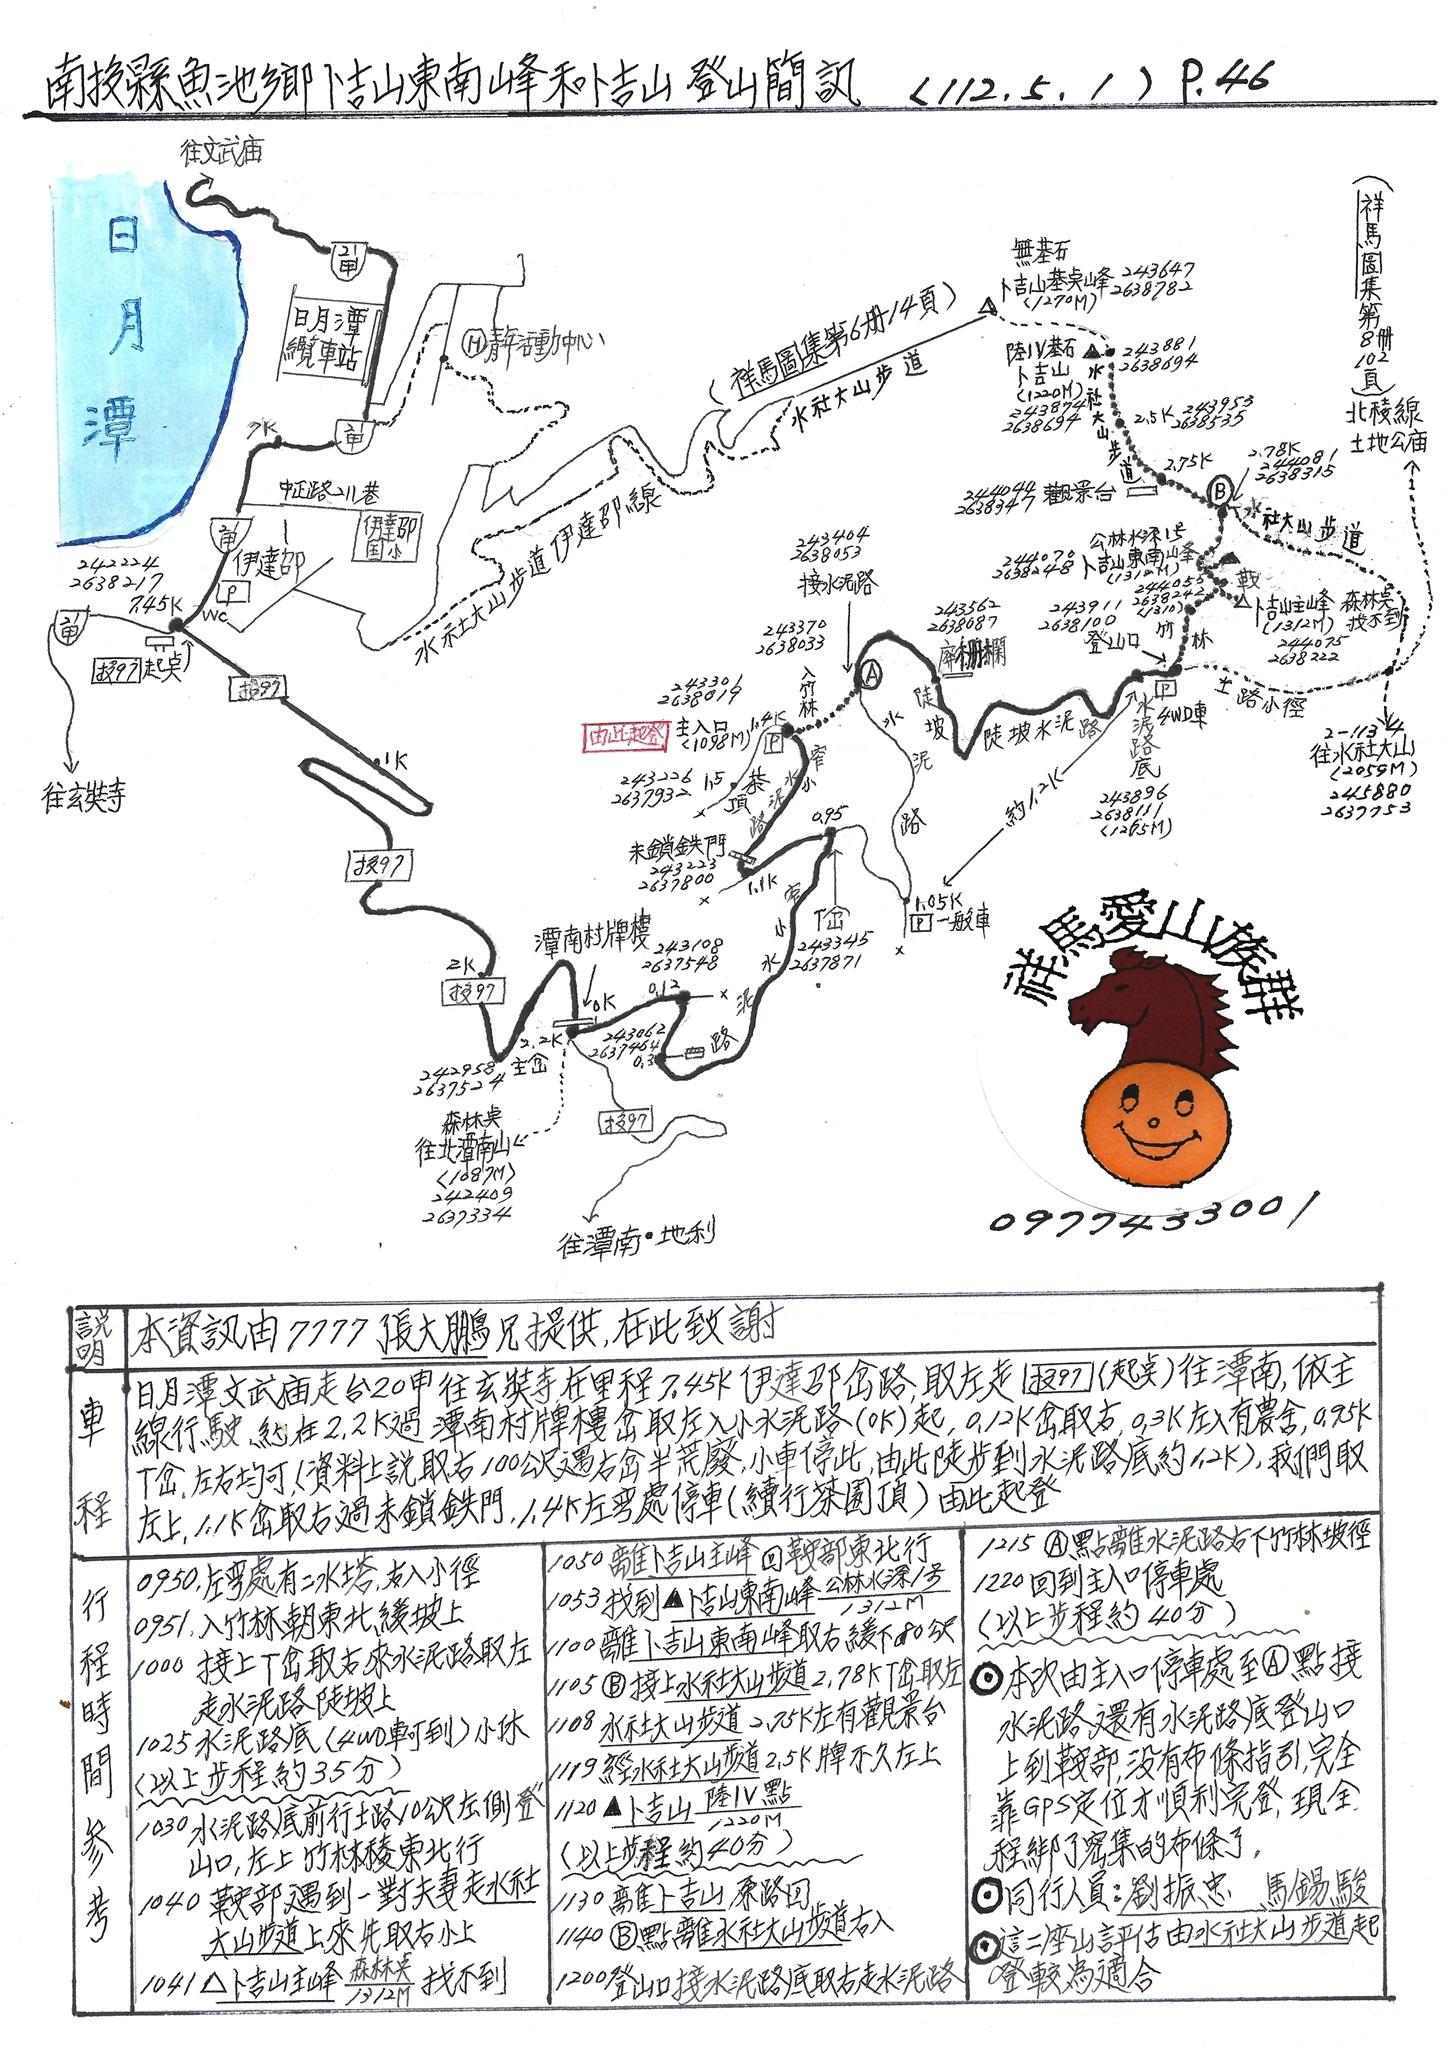 南投縣魚池鄉卜吉山東南峰和卜吉山登山簡訊 (112.5.1) P.46
往文武庙
日月潭
21甲
日月潭
纜車站
Ⓗ青年活動中心
7K
21甲
中正路211巷
21甲
伊達邵
伊達邵
国小
P
WC
242224
2638217
7.45K
21甲
投97起点
投97
往玄奘寺
1K
投97
2K
投97
水社大山步道伊達邵線
(祥馬圖集第6册14頁)
水社大山步道
無基石
卜吉山基点峰
(1270M)
243647
2638782
陸IV基石
卜吉山
(1220M)
243874
2638694
243881
2638694
水社大山步道
2.5K
243953
2638535
2.75K
2.78K
244081
2638315
244044
2638347
觀景台
Ⓑ
水社大山步道
(祥馬圖集第8册102頁)
北稜線
土地公庙
公林水深1号
卜吉山東南峰
(1312M)
244070
2638248
244055
2638242
(1310)
鞍
卜吉山主峰
(1312M)
244075
2638222
森林点
找不到
竹林
243911
2638100
登山口
P
4WD車
土路小徑
2-1134
往水社大山
(2059M)
245880
2637753
243404
2638053
接水泥路
243562
2638087
廢柵欄
243370
2638033
入竹林
Ⓐ
陡坡
陡坡水泥路
水泥路底
243896
2638111
(1265M)
約1.2K
水泥路
243301
2638019
主入口
(1098M)
1.4K
P
由此起登
243226
2637932
1.5
茶頂
窄小水泥路
未鎖鉄門
243223
2637800
1.1K
0.95
T岔
243345
2637871
1.05K
P一般車
窄小水泥路
潭南村牌樓
243108
2637548
0.12
0K
2.2K
主岔
242958
2637524
243062
2637464
0.3
森林点
往北潭南山
(1087M)
242409
2637334
投97
往潭南·地利
祥馬愛山族群
0977433001
説明
本資訊由7777張大鵬兄提供,在此致謝
車程
日月潭文武庙走台20甲往玄奘寺在里程7.45K伊達邵岔路,取左走投97(起点)往潭南,依主
線行駛,約在2.2K過潭南村牌樓岔取左入小水泥路(0K)起,0.12K岔取右,0.3K左入有農舍,0.95K
T岔,左右均可(資料上説取右100公尺遇右岔半荒廢,小車停此,由此陡步到水泥路底約1.2K),我們取
左上,1.1K岔取右過未鎖鉄門,1.4K左弯處停車(續行茶園頂)由此起登
行程時間參考
0950,左弯處有二水塔,右入小徑
0951,入竹林朝東北緩坡上
1000 接上T岔取右來水泥路取左
走水泥路陡坡上
1025水泥路底(4WD車可到)小休
(以上步程約35分)
1030水泥路底前行土路10公尺左側登
山口,左上竹林稜東北行
1040 鞍部遇到一對夫妻走水社
大山步道上來先取右小上
1041△卜吉山主峰 森林点 1312M 找不到
1050離卜吉山主峰回鞍部東北行
1053找到▲卜吉山東南峰 公林水深1号 1312M
1100離卜吉山東南峰取右緩下80公尺
1105Ⓑ接上水社大山步道2.78KT岔取左
1108 水社大山步道2.75K左有觀景台
1119經水社大山步道2.5K牌不久左上
1120▲卜吉山 陸IV點 1220M
(以上步程約40分)
1130離卜吉山原路回
1140Ⓑ點離水社大山步道右入
1200登山口接水泥路底取右走水泥路
1215Ⓐ點離水泥路右下竹林坡徑
1220回到主入口停車處
(以上步程約40分)
⊙本次由主入口停車處至Ⓐ點接
水泥路,還有水泥路底登山口
上到鞍部,没有布條指引,完全
靠GPS定位才順利完登,現全
程綁了密集的布條了。
⊙同行人員:劉振忠 馬錫駿
⊙這二座山評估由水社大山步道起
登較為適合